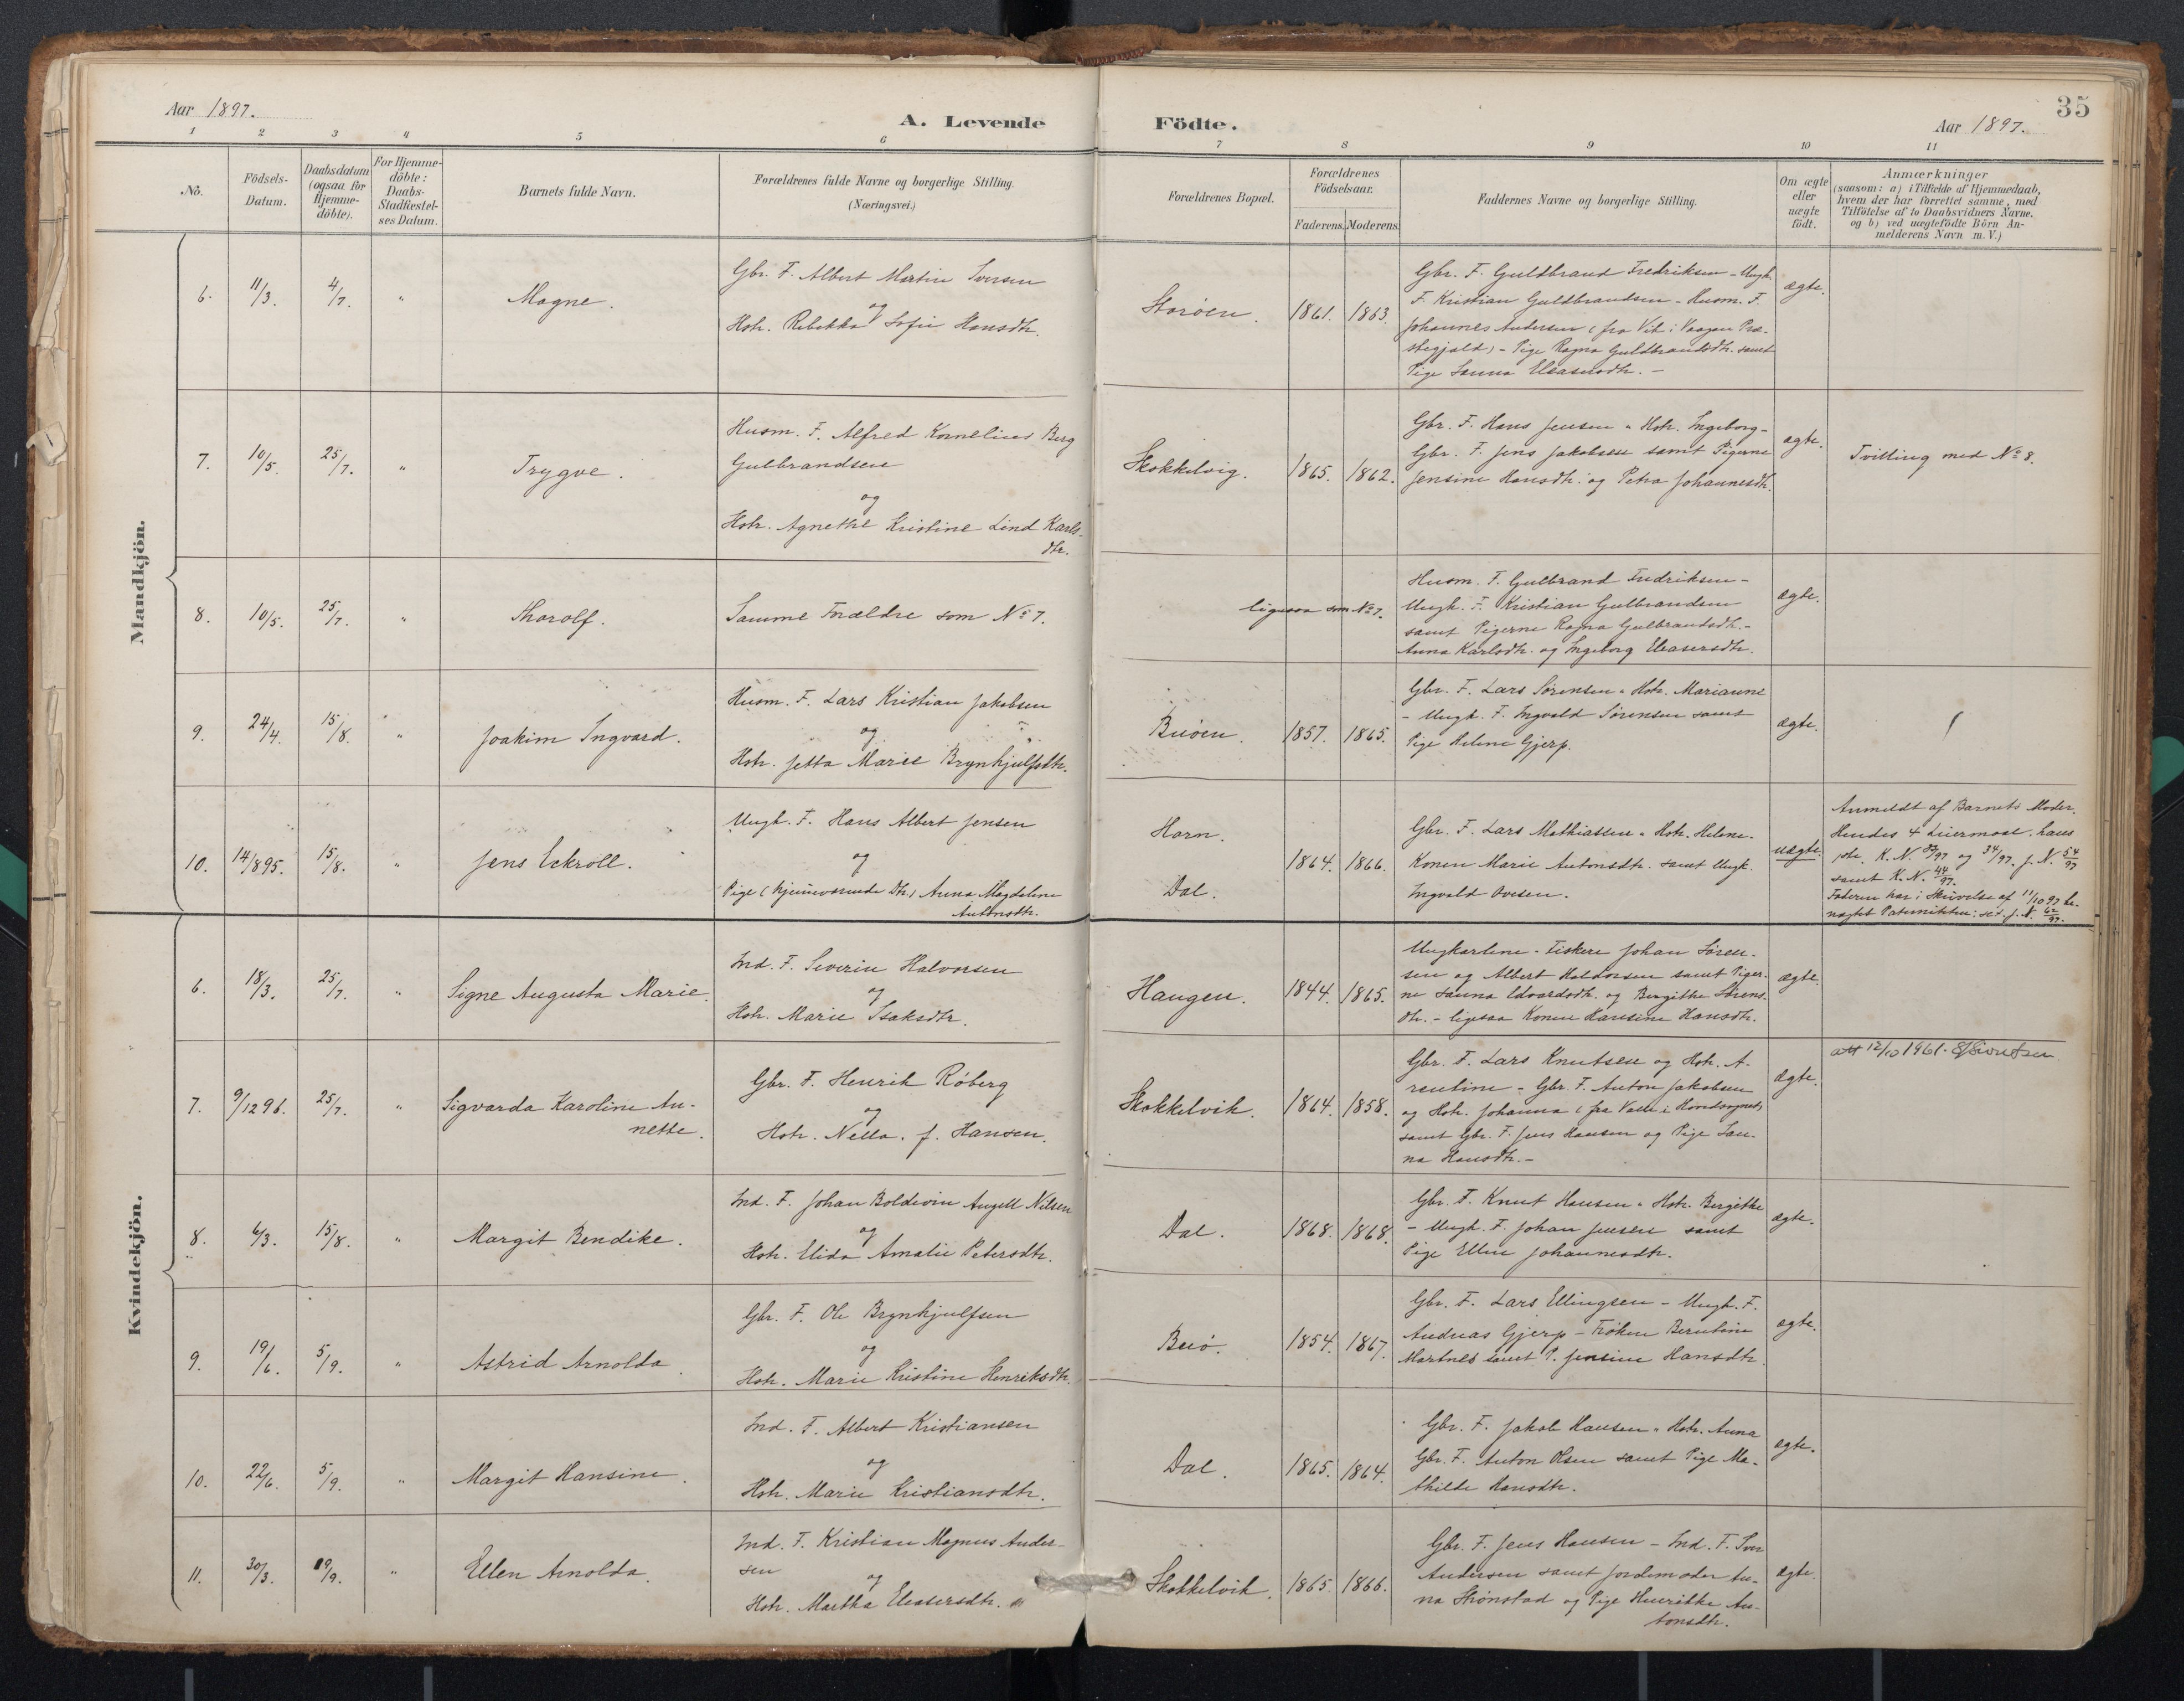 35
Aar 1897.
A. Levende Födte.
Aar 1897.
1 2 3 4 5 6 7 8 9 10 11
No.
Födsels-Datum.
Daabsdatum (ogsaa for Hjemme-döbte).
For Hjemme-döbte: Daabs-Stadfæstel-ses Datum.
Barnets fulde Navn.
Forældrenes fulde Navne og borgerlige Stilling.
(Næringsvei.)
Forældrenes Bopæl.
Forældrenes Födselsaar.
Faderens. Moderens.
Faddernes Navne og borgerlige Stilling.
Om ægte eller uægte födt.
Anmærkninger
(saasom: a) i Tilfælde af Hjemmedaab,
hvem der har forrettet samme, med
Tilföielse af to Daabsvidners Navne.
og b) ved uægtefödte Börn An-
melderens Navn m. V.)
Mandkjön.
6. 11/3. 4/7. "
Magne.
Gbr. F. Albert Martin Iversen
og
Hstr. Rebekka Sofie Hansdtr.
Storöen. 1861. 1863.
Gbr. F. Guldbrand Fredriksen - Ungk.
F. Kristian Guldbrandsen - Husm. F.
Johannes Andersen (fra Vik i Vaagan Præ-
stegjeld) - Pige Ragna Guldbrandsdtr. samt
Pige Sanna Eleasersdtr. -
ægte.
7. 10/5. 25/7. "
Trygve.
Husm. F. Alfred Kornelius Berg
Gulbrandsen
og
Hstr. Agnethe Kristine Lind Karls-
dtr.
Skokkelvig. 1865. 1862.
Gbr. F. Hans Jensen " Hstr. Ingeborg -
Gbr. F. Jens Jakobsen samt Pigerne
Jensine Hansdtr. og Petra Johannesdtr.
ægte.
Tvilling med No 8.
8. 10/5. 25/7. "
Thorolf.
Samme Forældre som No 7.
ligesaa som No 7.
Husm. F. Gulbrand Fredriksen -
Ungk. F. Kristian Gulbrandsen
samt Pigerne Ragna Gulbrandsdtr. -
Anna Karlsdtr. og Ingeborg Eleasersdtr.
ægte.
9. 24/4. 15/8. "
Joakim Ingvard.
Husm. F. Lars Kristian Jakobsen
og
Hstr. Jetta Marie Brynhjulfsdtr.
Buöen. 1857. 1865.
Gbr. F. Lars Sörensen " Hstr. Marianne
- Ungk. F. Ingvald Sörensen samt
Pige Helene Gjerp.
ægte.
10. 14/8 95. 15/8. "
Jens Eckroll.
Ungk. F. Hans Albert Jensen
og
Pige (hjemmeværende Dtr.) Anna Magdalene
Antonsdtr.
Horn.
Dal.
1864. 1866.
Gbr. F. Lars Mathiassen " Hstr. Helene -
Konen Marie Antonsdtr. samt Ungk.
Ingvald Ovesen.
uægte
Anmeldt af Barnets Moder.
Hendes 4 Leiermaal.
K. N. 33/97 og 34/97. J. N. 54/97
samt K. N. 44/97.
Faderen har i Skrivelse af 11/10 97 be-
nægtet Paterniteten: se J. N. 62/97.
Kvindekjön.
6. 18/3. 25/7. "
Signe Augusta Marie.
Ind. F. Severin Halvorsen
og
Hstr. Marie Isaksdtr.
Haugen. 1844. 1865.
Ungkarlene - Fiskere Johan Sören-
sen og Albert Haldorsen samt Piger-
ne Sanna Edvardsdtr. og Bergithe Sörens-
dtr. - ligesaa Konen Hansine Hansdtr.
ægte
7. 9/12 96. 25/7. "
Sigvarda Karoline An-
nette.
Gbr. F. Henrik Röberg
og
Hstr. Nella. f. Hansen.
Skokkelvik. 1864. 1858.
Gbr. F. Lars Knutsen og Hstr. A-
rentine - Gbr. F. Anton Jakobsen
og Hstr. Johanna (fra Valle i Hovedsognet)
samt Gbr. F. Jens Hansen og Pige San-
na Hansdtr. -
ægte.
att 12/10 1961.
8. 6/3. 15/8. "
Margit Bendike.
Ind. F. Johan Boldevin Angell Nilsen
og
Hstr. Elida Amalie Petersdtr.
Dal. 1868. 1868.
Gbr. F. Knut Hansen " Hstr. Bergithe
- Ungk. F. Johan Jensen samt
Pige Elline Johannesdtr.
ægte.
9. 19/6. 5/9. "
Astrid Arnolda.
Gbr. F. Ole Brynhjulfsen
og
Hstr. Marie Kristine Henriksdtr.
Buö. 1854. 1867.
Gbr. F. Lars Ellingsen - Ungk. F.
Andreas Gjerp - Fröken Berntine
Martnes samt P. Jensine Hansdtr.
ægte.
10. 22/6. 5/9. "
Margit Hansine.
Ind. F. Albert Kristiansen
og
Hstr. Marie Kristiansdtr.
Dal. 1865. 1864.
Gbr. F. Jakob Hansen " Hstr. Anna
Gbr. F. Anton Olsen samt Pige Ma-
thilde Hansdtr.
ægte.
11. 30/3. 19/9. "
Ellen Arnolda.
Ind. F. Kristian Magnus Ander-
sen
og
Hstr. Martha Eleasersdtr.
Skokkelvik. 1865. 1866.
Gbr. F. Jens Hansen - Ind. F.
Andersen samt Jordemoder An-
na Strönstad og Pige Henrikke An-
tonsdtr.
ægte.